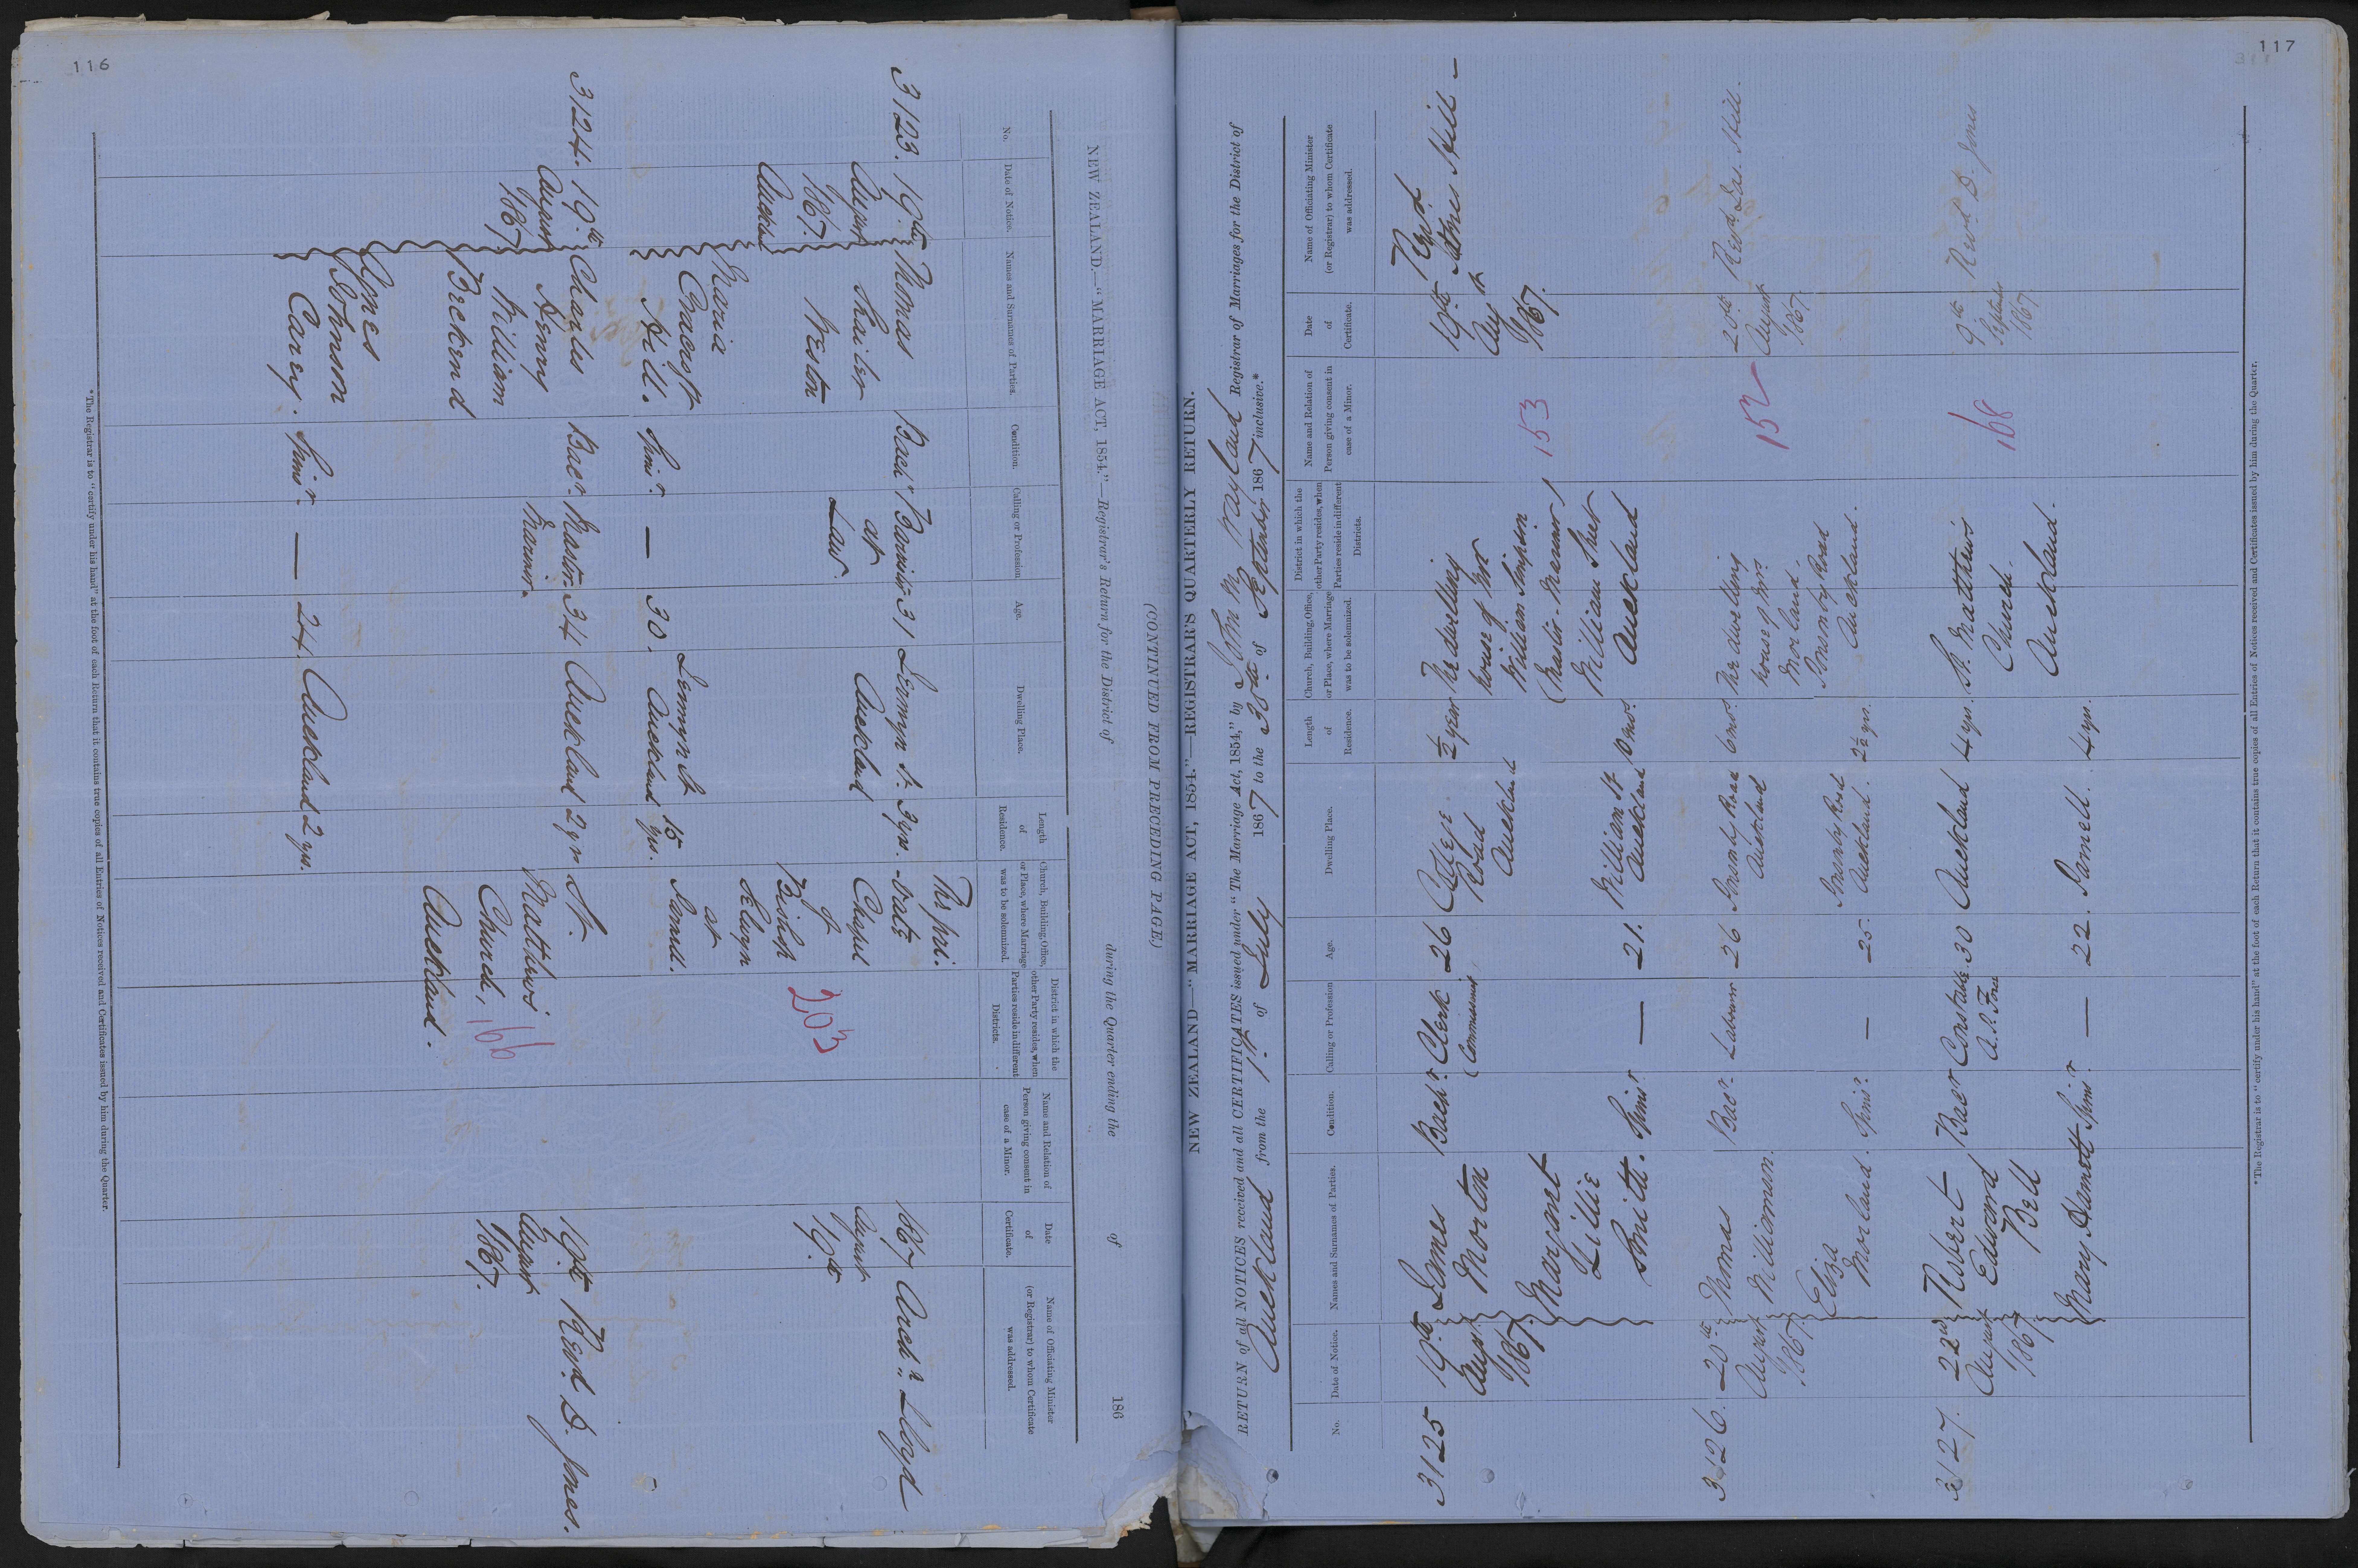 116
NEW ZEALAND.—"MARRIAGE ACT, 1854."—Registrar's Return for the District of during the Quarter ending the of 186
No.
Date of Notice.
Names and Surnames of Parties.
Condition.
Calling or Profession
Age.
Dwelling Place.
Length
of
Residence.
Church, Building, Office,
or Place, where Marriage
was to be solemnized.
District in which the
other Party resides, when
Parties reside in different
Districts.
Name and Relation of
Person giving consent in
case of a Minor.
Date
of
Certificate.
Name of Officiating Minister
(or Registrar) to whom Certificate
was addressed.
3123.
19th
August
1867.
Auckland
Thomas
Shailer
Weston
Bachr
Barrister
at
Law.
31
Auckland
3 yrs.
The pri-
vate
Chapel
of
Bishop
Selwyn
at
Parnell.
203
1867
August
19th
Archn. Lloyd
Maria
Cracroft
Hill.
Spinr.
—
30.
Auckland
15
yrs.
3124.
19th
August
1867
Charles
Henry
William
Breckend
Bacr.
Master
Mariner.
34
Auckland
2 yrs
St.
Matthew's
Church,
Auckland.
166
19th
August
1867.
Revd. D. Jones.
Agnes
Johnson
Carey.
Spinr.
—
24.
Auckland
2 yrs.
*The Registrar is to "certify under his hand" at the foot of each Return that it contains true copies of all Entries of Notices received and Certificates issued by him during the Quarter.
117
(CONTINUED FROM PRECEDING PAGE)
NEW ZEALAND—"MARRIAGE ACT, 1854."—REGISTRAR'S QUARTERLY RETURN.
RETURN of all NOTICES received and all CERTIFICATES issued under "The Marriage Act, 1854," by John M Wayland Registrar of Marriages for the District of
Auckland from the 1st of July 1867 to the 30th of September 1867 inclusive.*
No.
Date of Notice.
Names and Surnames of Parties.
Condition.
Calling or Profession
Age.
Dwelling Place.
Length
of
Residence.
Church, Building, Office,
or Place, where Marriage
was to be solemnized.
District in which the
other Party resides, when
Parties reside in different
Districts.
Name and Relation of
Person giving consent in
case of a Minor.
Date
of
Certificate.
Name of Officiating Minister
(or Registrar) to whom Certificate
was addressed.
3125
19th
Augt.
1867.
James
Morton
Bachr.
Clerk
26
College
Road
Auckland
½ year
The dwelling
house of Mr
William Simpson
(Master Mariner)
William Street
Auckland
153
19th
Augt
1867.
Revd.
James Hill —
Margaret
Lillie
Smith.
Spinr.
—
21.
William St
Auckland
3126.
20th
August
1867.
Thomas
Williamson.
Bacr.
Labourer
26
Ponsonby Road
Auckland
6 mos.
The dwelling
house of Mrs.
Morland.
Ponsonby Road
Auckland.
152
20th
August
1867.
Revd. Jas. Hill.
Eliza
Morland.
Spinr.
—
25.
Ponsonby Road
Auckland.
2½ yrs.
3127.
22nd
August
1867
Robert
Edward
Bell
Bacr
Constable
A. P. Force
30
Auckland
4 yrs.
St. Matthew's
Church.
Auckland.
168
9th
September
1867.
Revd. D. Jones
Mary Hamett
Spinr.
—
22.
Parnell.
4 yrs.
*The Registrar is to "certify under his hand" at the foot of each Return that it contains true copies of all Entries of Notices received and Certificates issued by him during the Quarter.